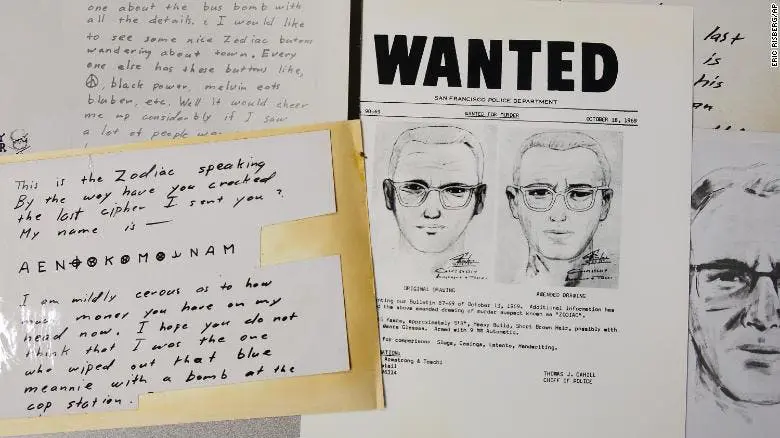 one about the bus bomb with
all the details. I would like
to see some nice Zodiac butons
wandering about town. Every
one else has these buttons like,
☮, black power, melvin eats
bluber, etc. Well it would cheer
me up considerbly if I saw
a lot of people
This is the Zodiac speaking
By the way have you cracked
the last cipher I sent you?
My name is —
A E N ⌖ ⊗ K ⊗ M ⊗ ⅃ N A M
I am mildly cerous as to how
much money you have on my
head now. I hope you do not
think that I was the one
who wiped out that blue
meannie with a bomb at the
cop station.
WANTED
SAN FRANCISCO POLICE DEPARTMENT
90-69 WANTED FOR MURDER OCTOBER 18, 1969
ORIGINAL DRAWING AMENDED DRAWING
nting our Bulletin 87-69 of October 13, 1969. Additional information has
d the above amended drawing of murder suspect known as "ZODIAC".
approximately 5'8", Heavy Build, Short Brown Hair, possibly with
Glasses. Armed with 9 MM Automatic.
for comparison: Slugs, Casings, Latents, Handwriting.
Armstrong & Toschi
THOMAS J. CAHILL
CHIEF OF POLICE
last
is
his
ERIC RISBERG/AP